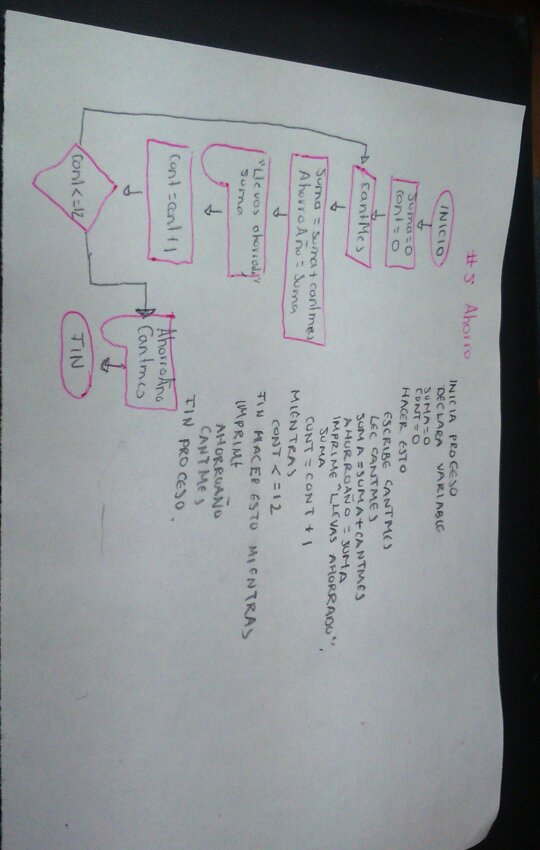 #5 Ahorro
INICIO
suma=0
cont=0
cantMes
suma = suma + cantmes
Ahorro Año = suma
"Llevas ahorrado"
suma
cont = cont + 1
cont<=12
Ahorro Año
Cantmes
FIN
INICIA PROCESO
DECLARA VARIABLE
SUMA=0
CONT=0
HACER ESTO
ESCRIBE CANTMES
LEC CANTMES
SUMA=SUMA+CANTMES
AHORROAÑO=SUMA
IMPRIME "LLEVAS AHORRADO",
SUMA
CONT = CONT + 1
MIENTRAS
CONT <= 12
FIN HACER ESTO MIENTRAS
IMPRIME
AHORROAÑO
CANTMES
FIN PROCESO.